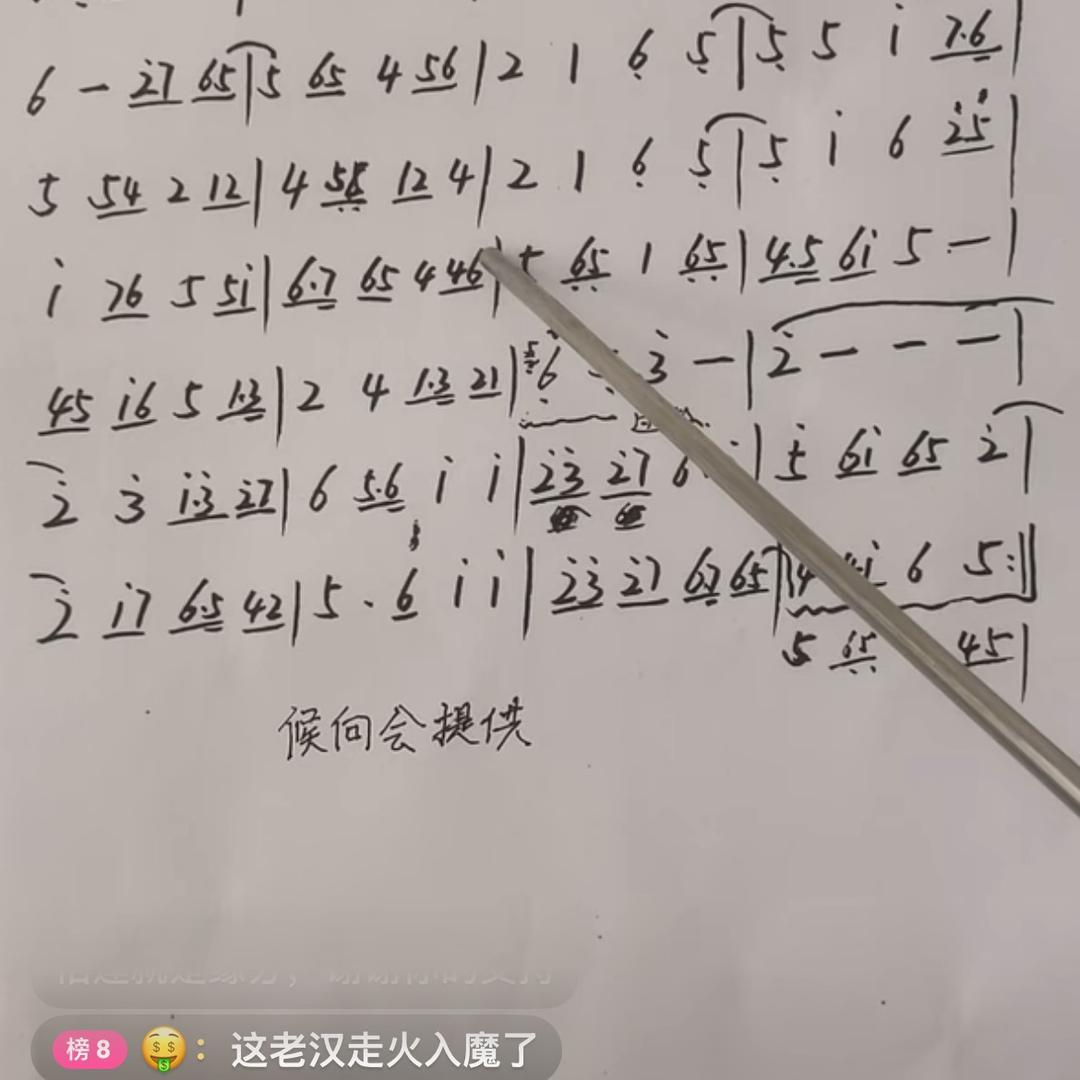 6 — i̇7 65|5 65 4 56|2 1 6 5|5 5 i 7·6|
5 54 2 12|4 12 4|2 1 6 5|5 i 6 25|
i 76 5 5i|6·7 65 4 46|5 65 1 65|4·5 6i 5 —|
45 i6 5 1·3|2 4 1·3 21|6 3 —|2 — — —|
2 3 1·3 27|6 5·6 i i|23 27 6|5 6i 65 2|
2 i7 6·5 42|5 · 6 i i|23 27 6·7 65|4 6 5:‖
5 65 45|
候向会提供
榜8 🤑：这老汉走火入魔了